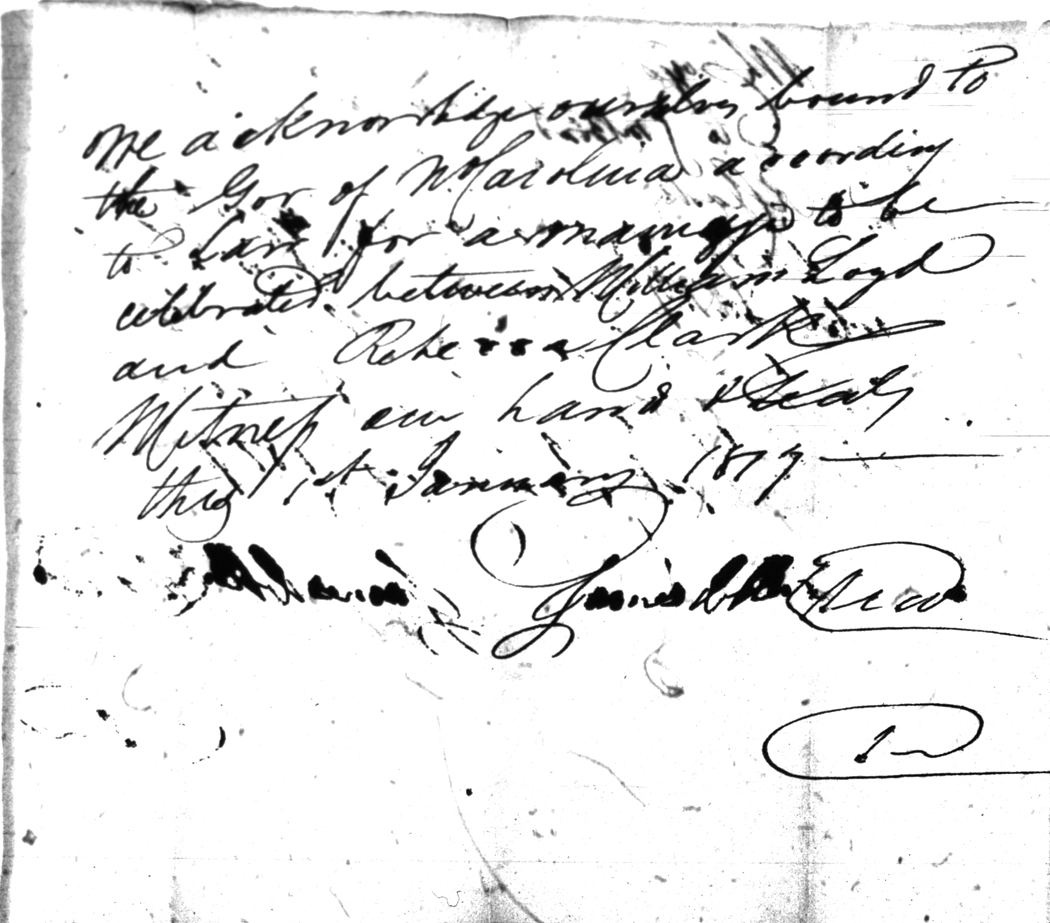 We acknowledge ourselves bound to
the Gov of N Carolina according
to Law for a marriage to be
celebrated between William Loyd
and Rebecca Clark
Witness our hand & Seals
this 1st January 1817
James